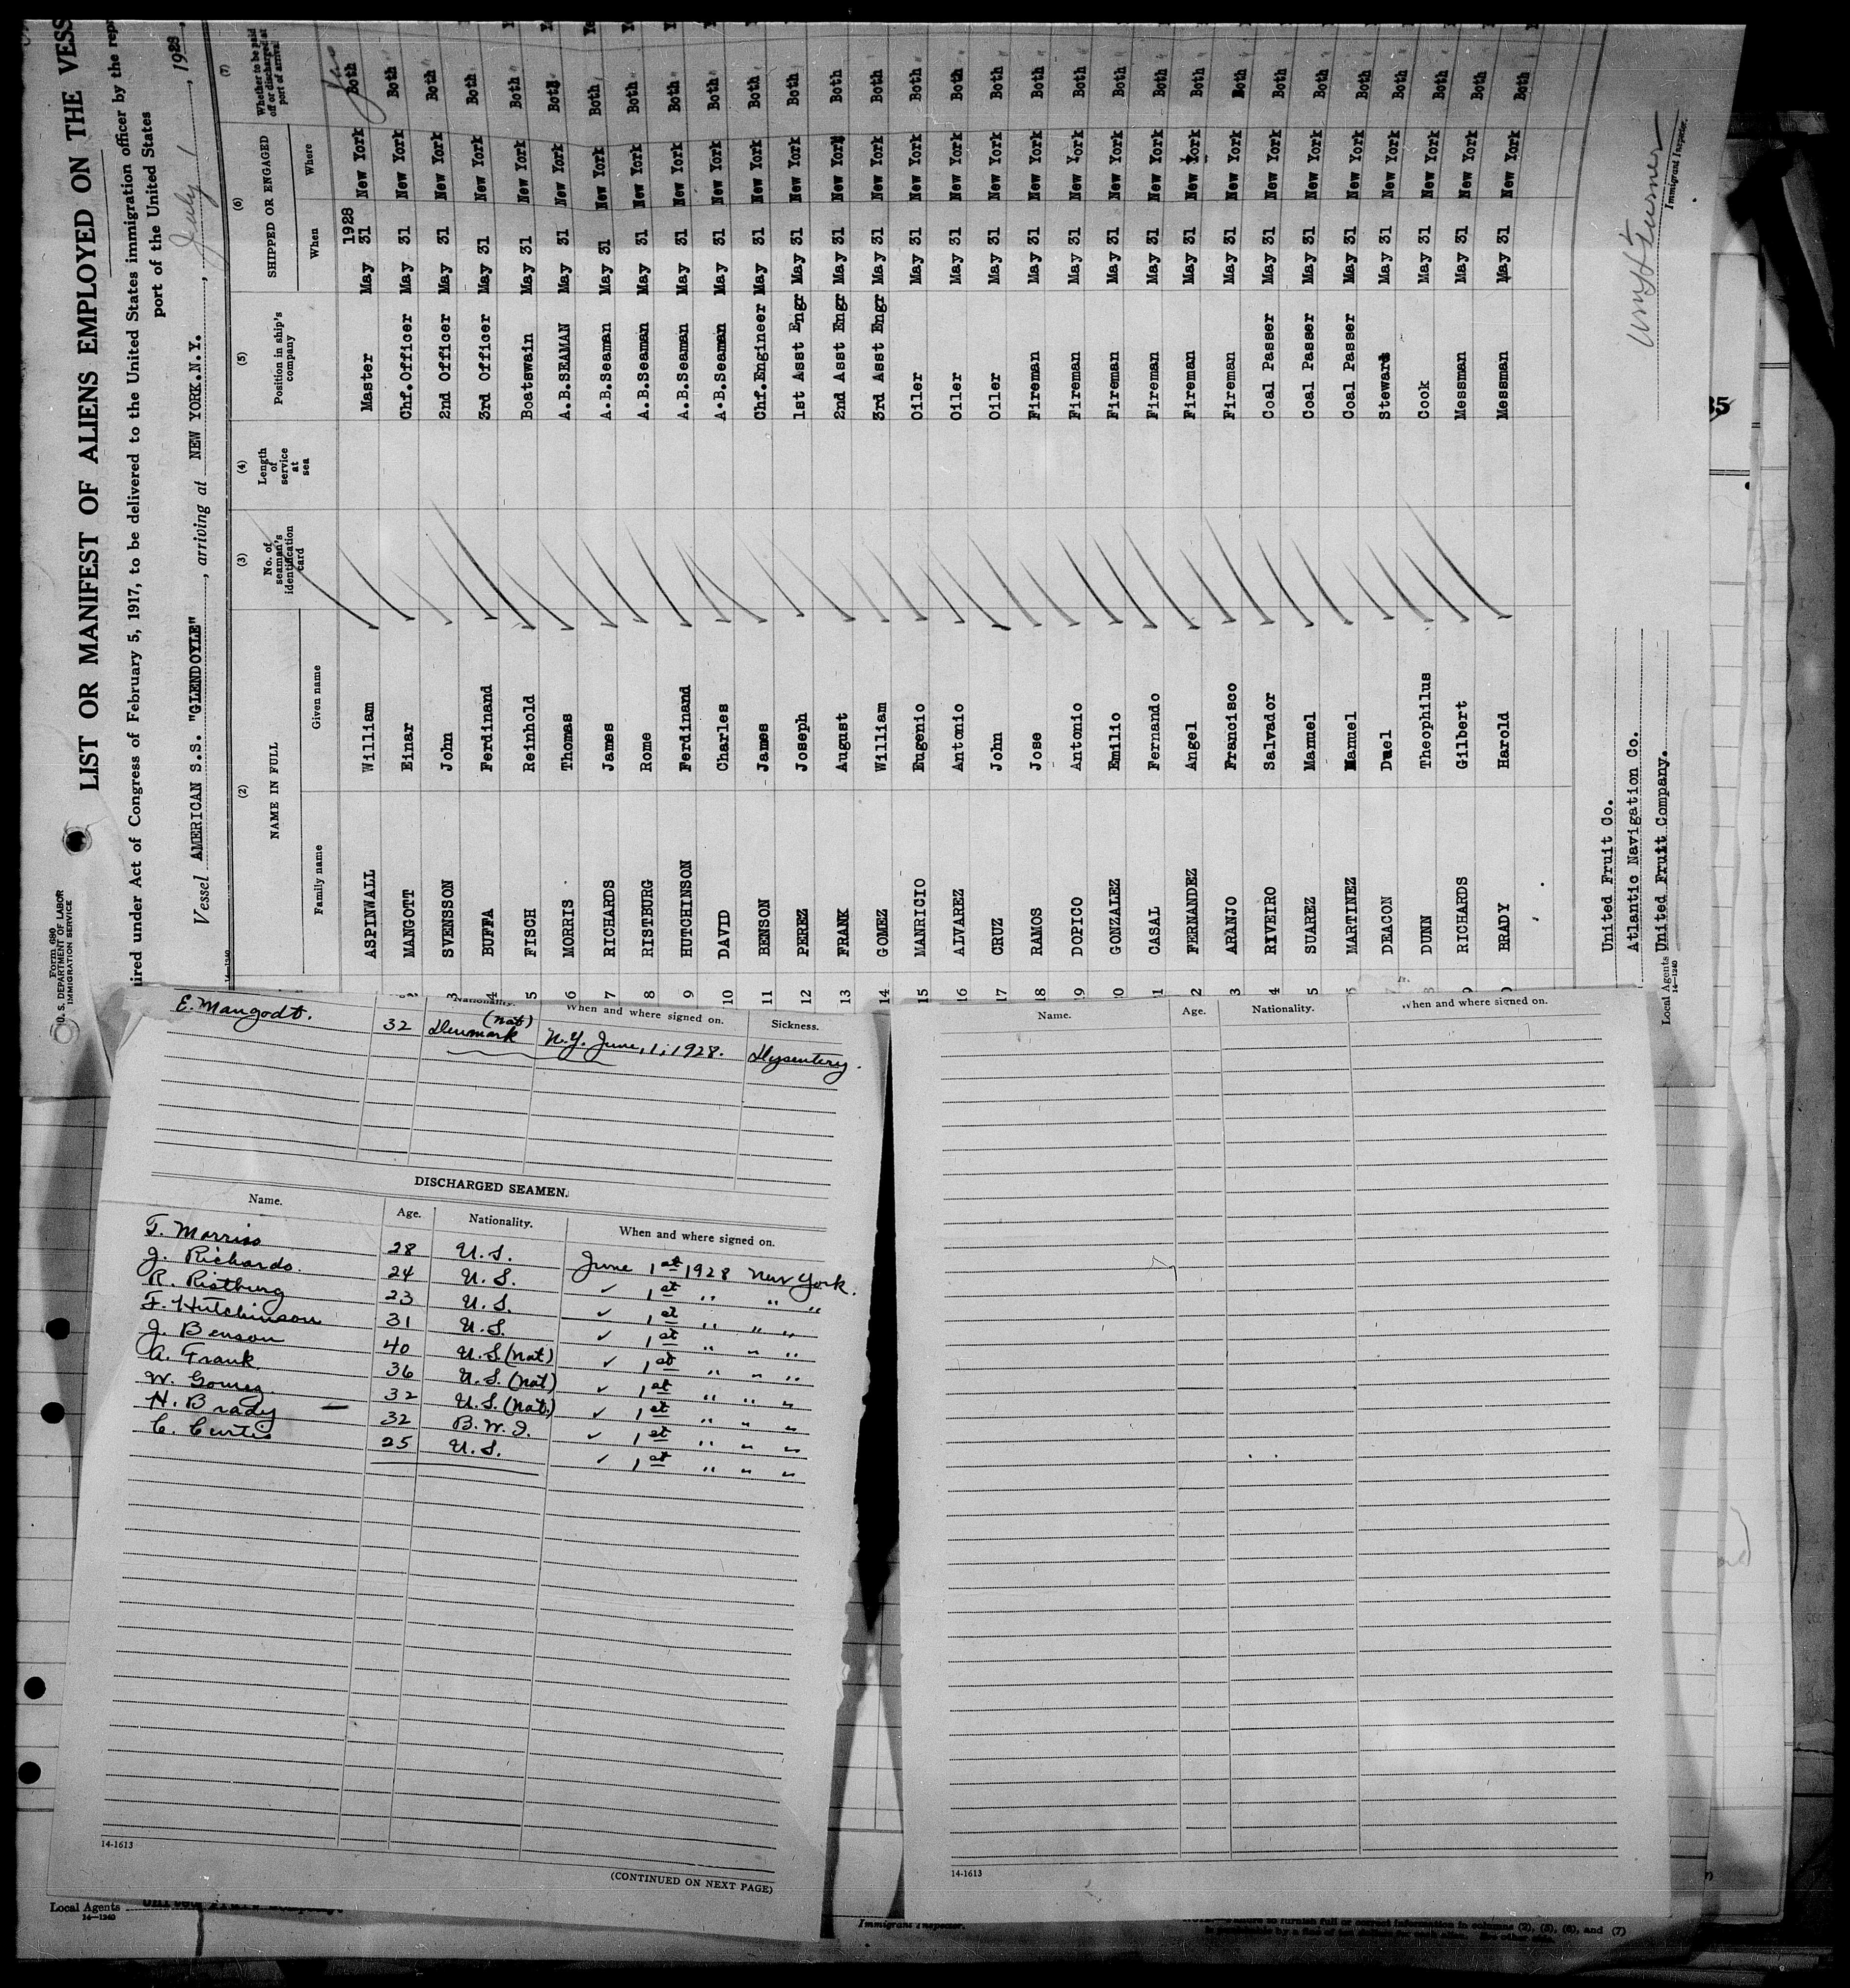 Form 680
U. S. DEPARTMENT OF LABOR
IMMIGRATION SERVICE
LIST OR MANIFEST OF ALIENS EMPLOYED ON THE VESS
ired under Act of Congress of February 5, 1917, to be delivered to the United States immigration officer by the rep
port of the United States
Vessel AMERICAN S.S. "GLENDOYLE", arriving at NEW YORK.N.Y., July 1, 1928,
14—1240
(2) (3) (4) (5) (6) (7)
NAME IN FULL No. of seaman's identification card Length of service at sea Position in ship's company SHIPPED OR ENGAGED Whether to be paid off or discharged at port of arrival
Family name Given name When Where
1928
ASPINWALL William Master May 31 New York Both
MANGOTT Einar Chf.Officer May 31 New York Both "
3 SVENSSON John 2nd Officer May 31 New York Both "
4 BUFFA Ferdinand 3rd Officer May 31 New York Both "
5 FISCH Reinhold Boatswain May 31 New York Both "
6 MORRIS Thomas A.B.SEAMAN May 31 New York Both "
7 RICHARDS James A.B.Seaman May 31 New York Both
8 RISTBURG Rome A.B.Seaman May 31 New York Both "
9 HUTCHINSON Ferdinand A.B.Seaman May 31 New York Both "
10 DAVID Charles A.B.Seaman May 31 New York Both "
11 BENSON James Chf.Engineer May 31 New York Both "
12 PEREZ Joseph 1st Asst Engr May 31 New York Both
13 FRANK August 2nd Asst Engr May 31 New York Both
14 GOMEZ William 3rd Asst Engr May 31 New York Both "
15 MANRICIO Eugenio Oiler May 31 New York Both "
16 ALVAREZ Antonio Oiler May 31 New York Both "
17 CRUZ John Oiler May 31 New York Both "
18 RAMOS Jose Fireman May 31 New York Both "
19 DOPICO Antonio Fireman May 31 New York Both "
20 GONZALEZ Emilio Fireman May 31 New York Both "
1 CASAL Fernando Fireman May 31 New York Both "
2 FERNANDEZ Angel Fireman May 31 New York Both "
3 ARANJO Francisco Fireman May 31 New York Both "
4 RIVEIRO Salvador Coal Passer May 31 New York Both "
5 SUAREZ Manuel Coal Passer May 31 New York Both "
6 MARTINEZ Manuel Coal Passer May 31 New York Both "
7 DEACON Duel Stewart May 31 New York Both "
8 DUNN Theophilus Cook May 31 New York Both "
9 RICHARDS Gilbert Messman May 31 New York Both "
0 BRADY Harold Messman May 31 New York Both
United Fruit Co.
Atlantic Navigation Co.
Local Agents United Fruit Company.
14—1240
Turner
Immigrant Inspector.
35
Nationality. When and where signed on. Sickness.
E. Mangodt. 32 Denmark (nat) N.Y. June, 1, 1928. Dysentery.
DISCHARGED SEAMEN.
Name. Age. Nationality. When and where signed on.
T. Morriss 28 U.S. June 1st 1928 New York.
J. Richards. 24 U.S. ✓ 1st " " "
R. Ristburg 23 U.S. ✓ 1st " " "
F. Hutchinson 31 U.S. ✓ 1st " " "
J. Benson 40 U.S. (nat) ✓ 1st " " "
A. Frank 36 U.S. (nat) ✓ 1st " " "
W. Gomez. 32 U.S. (nat.) ✓ 1st " " "
H. Brady — 32 B.W.I. ✓ 1st " " "
C. Curtis 25 U.S. ✓ 1st " " "
14-1613
(CONTINUED ON NEXT PAGE)
Name. Age. Nationality. When and where signed on.
14-1613
Local Agents
14—1240
Immigrant Inspector.
to furnish full or correct information in columns (2), (5), (6), and (7)